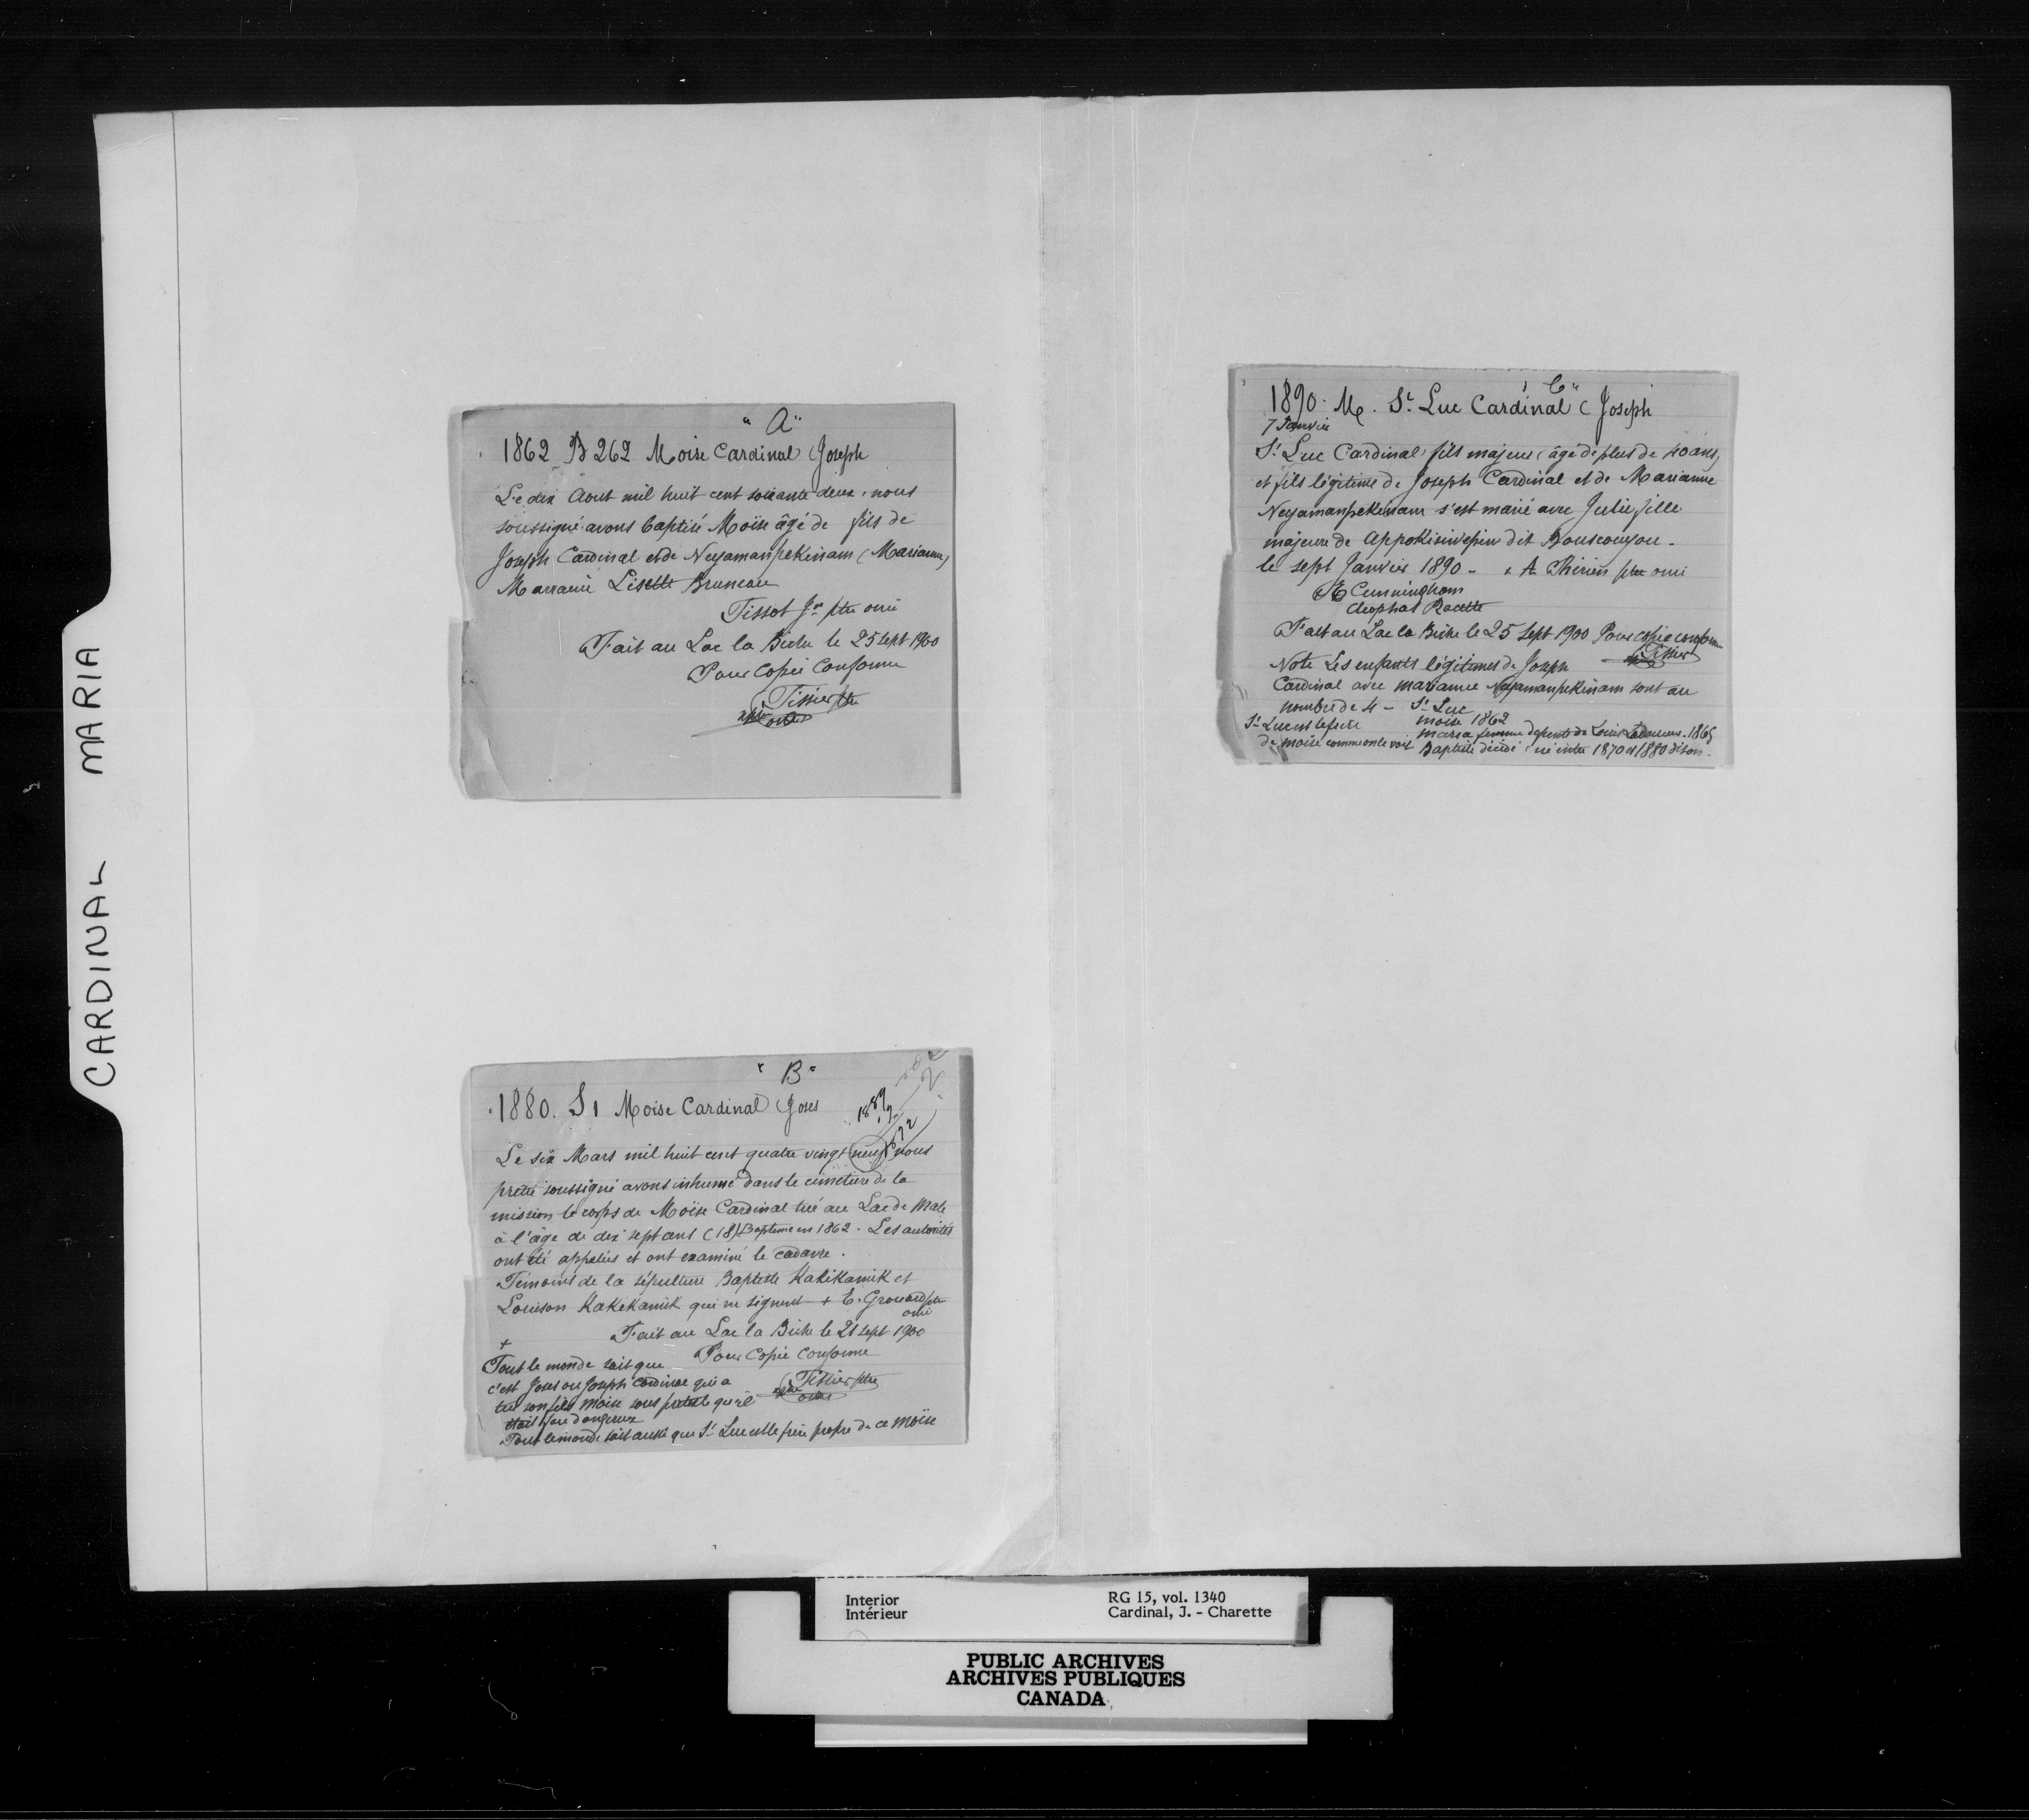 CARDINAL MARIA
"A"
1862 B 262 Moise Cardinal (Joseph
Le dix Aout mil huit cent soixante deux, nous
soussigné avons baptisé Moïse âgé de fils de
Joseph Cardinal et de Neyamanpekinam (Marianne)
Marraine Lisette Bruneau
Tissot Jn ptre omi
Fait au Lac la Biche le 25 sept 1900
Pour Copie Conforme
Tissier ptre
omi
"B"
1880. S1 Moise Cardinal (Joses
1889
Le six Mars mil huit cent quatre vingt neuf nous
prêtre soussigné avons inhumé dans le cimetière de la
mission le corps de Moïse Cardinal tué au Lac de
à l'âge de dix sept ans (18) Baptême en 1862. Les autorités
ont été appelées et ont examiné le cadavre.
Temoins de la sépulture Baptiste Kakikamik et
Louison Kakekamik qui ne signent + E. Grouard ptre
omi
Fait au Lac la Biche le 21 sept 1900
Pour Copie Conforme
+
Tout le monde sait que
c'est Joses ou Joseph Cardinal qui a
tué son fils Moise sous pretexte qu'il
était fou dangereux
Tissier ptre
omi
Tout le monde sait aussi que St Luc est le frère propre de ce Moïse
"C"
1890. M. St Luc Cardinal (Joseph
7 Janvier
St Luc Cardinal fils majeur (âgé de plus de 40 ans)
et fils légitime de Joseph Cardinal et de Marianne
Neyamanpekinam s'est marié avec Julie fille
majeure de Appokisiwepin dit Bousconyou -
le sept Janvier 1890 - + A Thérien ptre omi
E Cunningham
Cleophas Racette
Fait au Lac la Biche le 25 Sept 1900 Pour copie conforme
Tissier
Note Les enfants légitimes de Joseph
Cardinal avec Marianne Neyamanpekinam sont au
nombre de 4 - St Luc
St Luc est le frère moise 1862
de moise comme on le voit maria femme de Louis 1865
Baptiste décédé né entre 1870 et 1880 dit on.
Interior RG 15, vol. 1340
Intérieur Cardinal, J. - Charette
PUBLIC ARCHIVES
ARCHIVES PUBLIQUES
CANADA